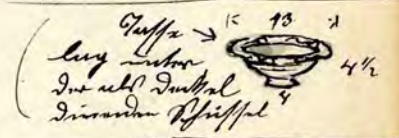 Tasse 13
lag unter 4 1/2
der als Deckel 4
dienenden Schüssel